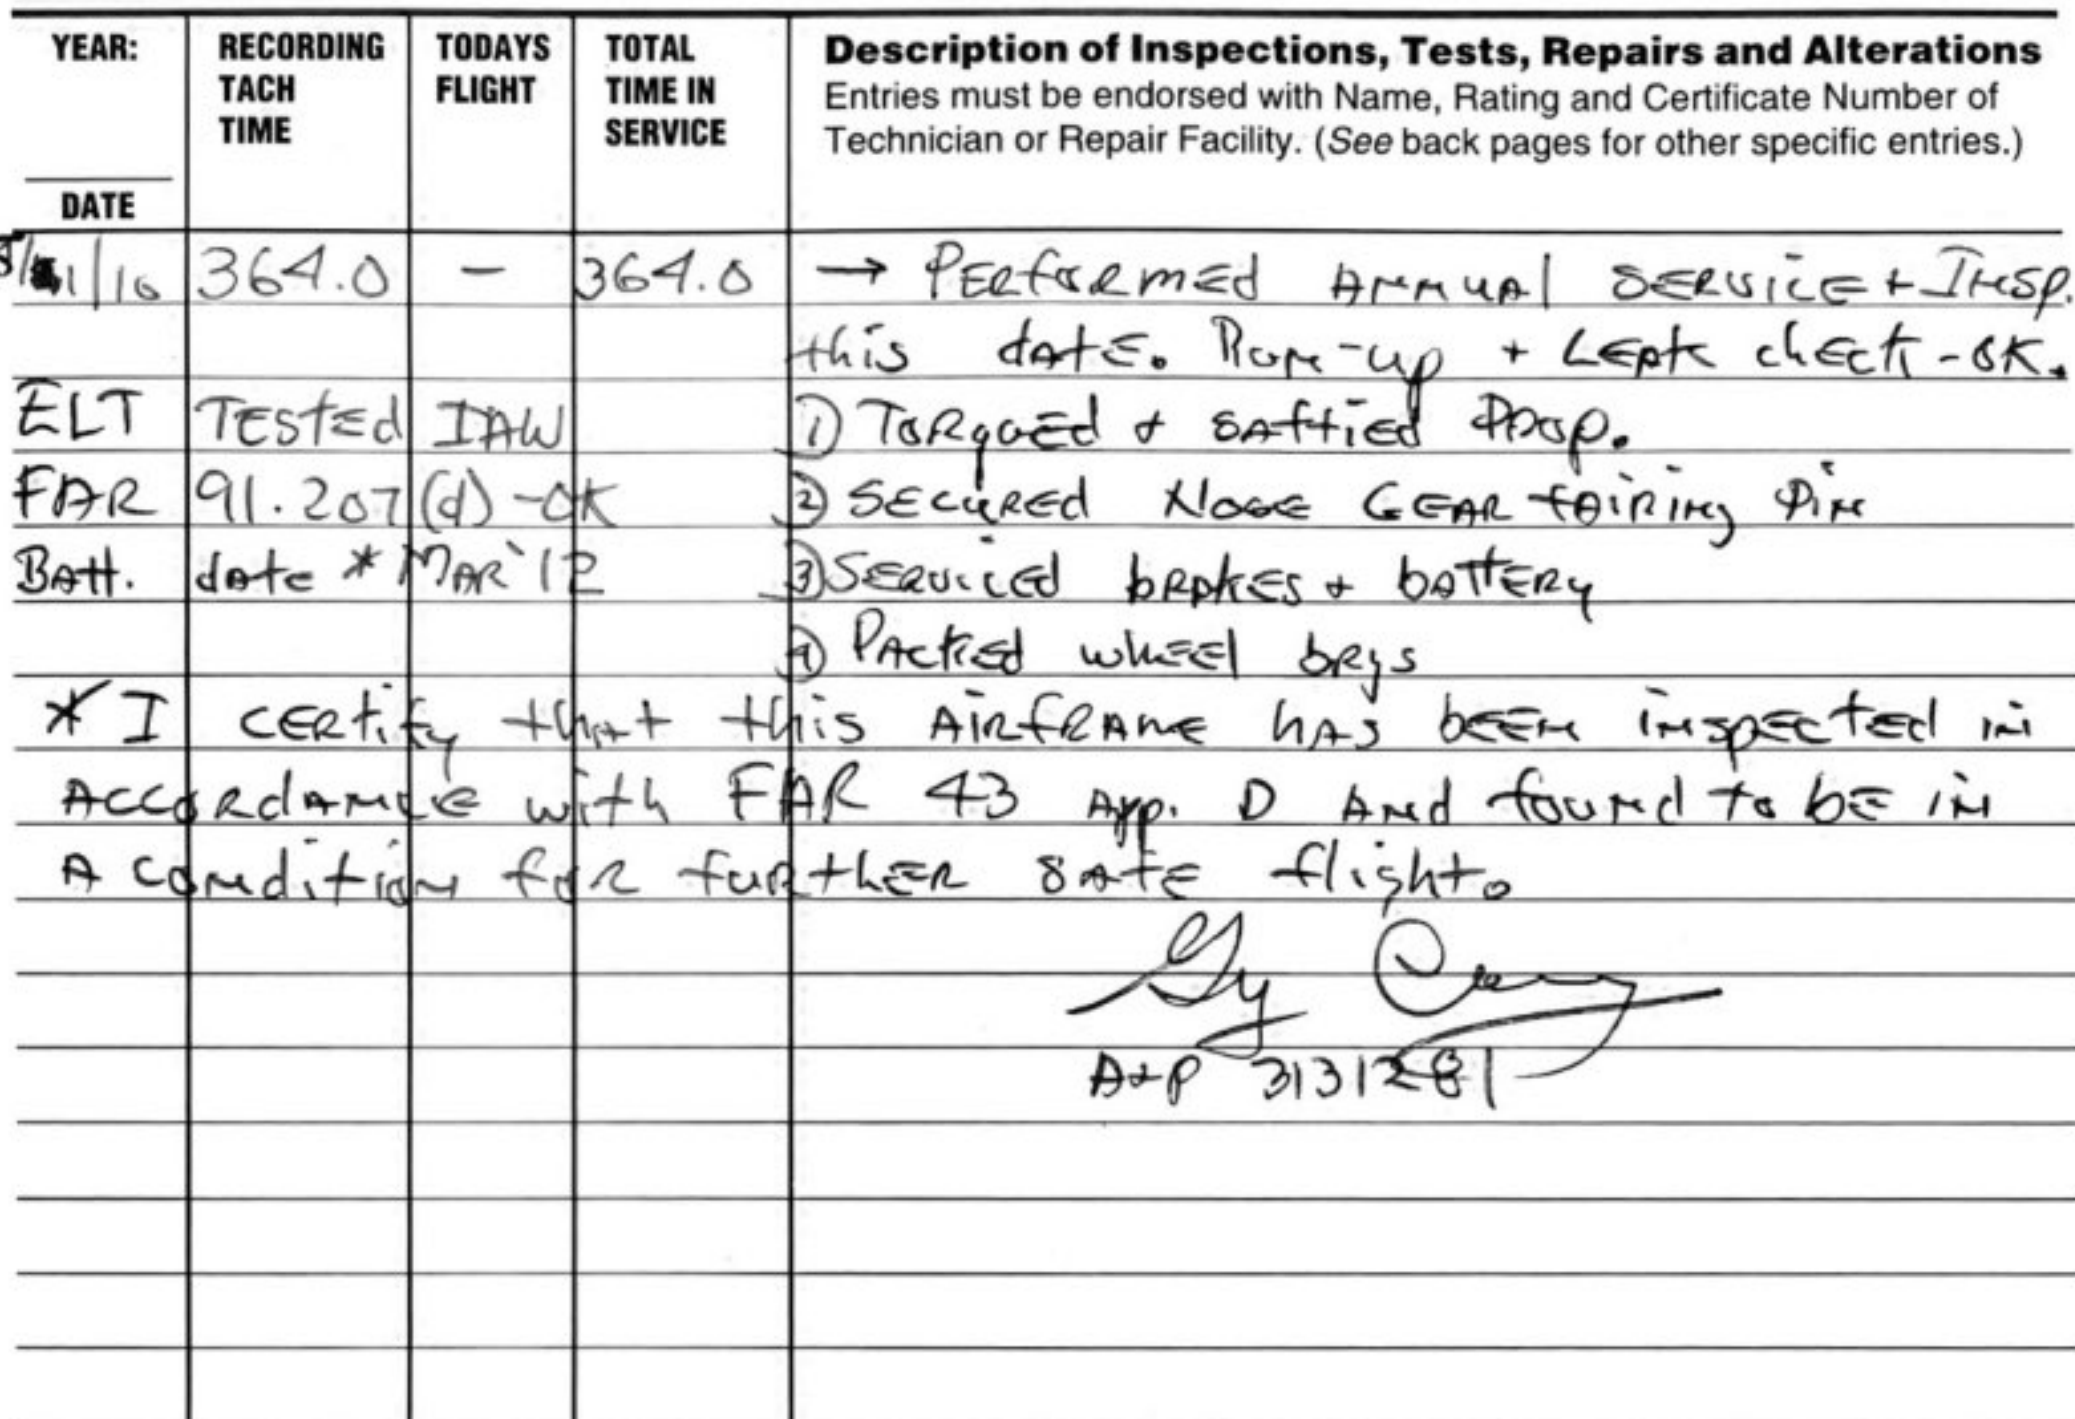 YEAR: RECORDING TACH TIME TODAYS FLIGHT TOTAL TIME IN SERVICE
Description of Inspections, Tests, Repairs and Alterations
Entries must be endorsed with Name, Rating and Certificate Number of
Technician or Repair Facility. (See back pages for other specific entries.)
DATE
364.0 – 364.0 → Performed Annual Service + Insp.
this date. Run-up + Leak check - OK.
ELT Tested IAW ① Torqued + saftied Prop.
FAR 91.207 (d) - OK ② Secured Nose Gear fairing Pin
Batt. date * Mar '12 ③ Serviced brakes + battery
④ Packed wheel brgs
* I certify that this Airframe has been inspected in
Accordance with FAR 43 App. D And found to be in
A condition for further safe flight.
A+P 3131281